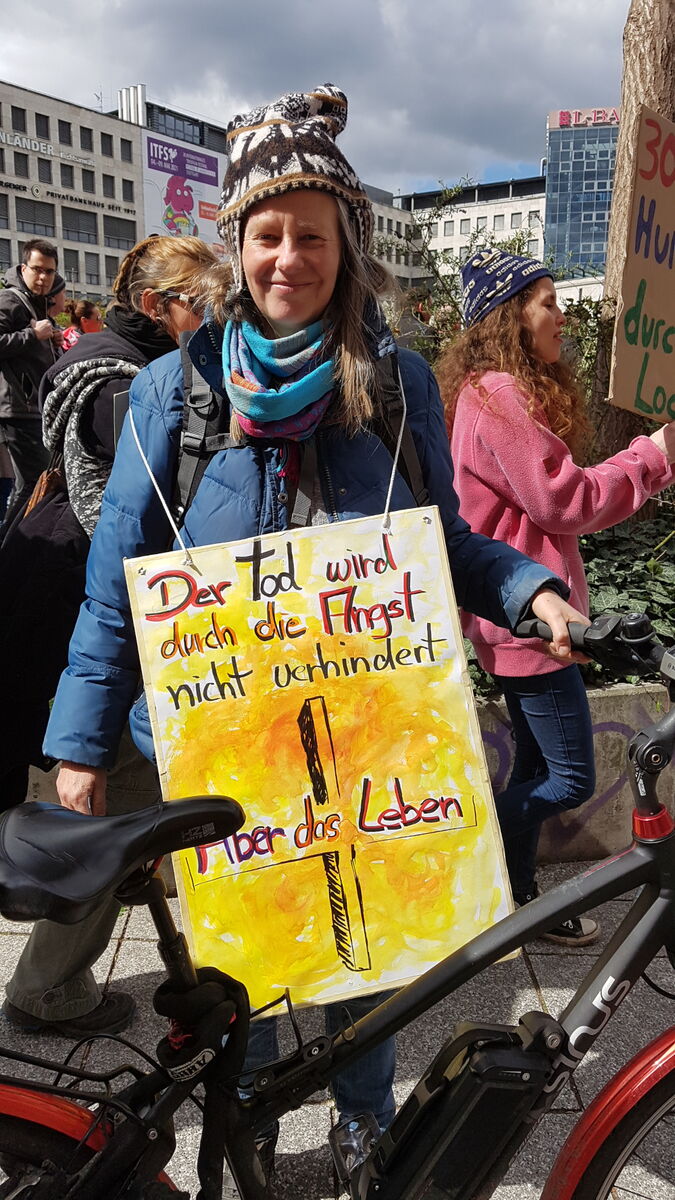 ITFS
LÄNDER
PRIVATBANKHAUS SEIT 1912
L-BA
adidas
30
Hu
durc
Loc
Der Tod wird
durch die Angst
nicht verhindert
Aber das Leben
sinus